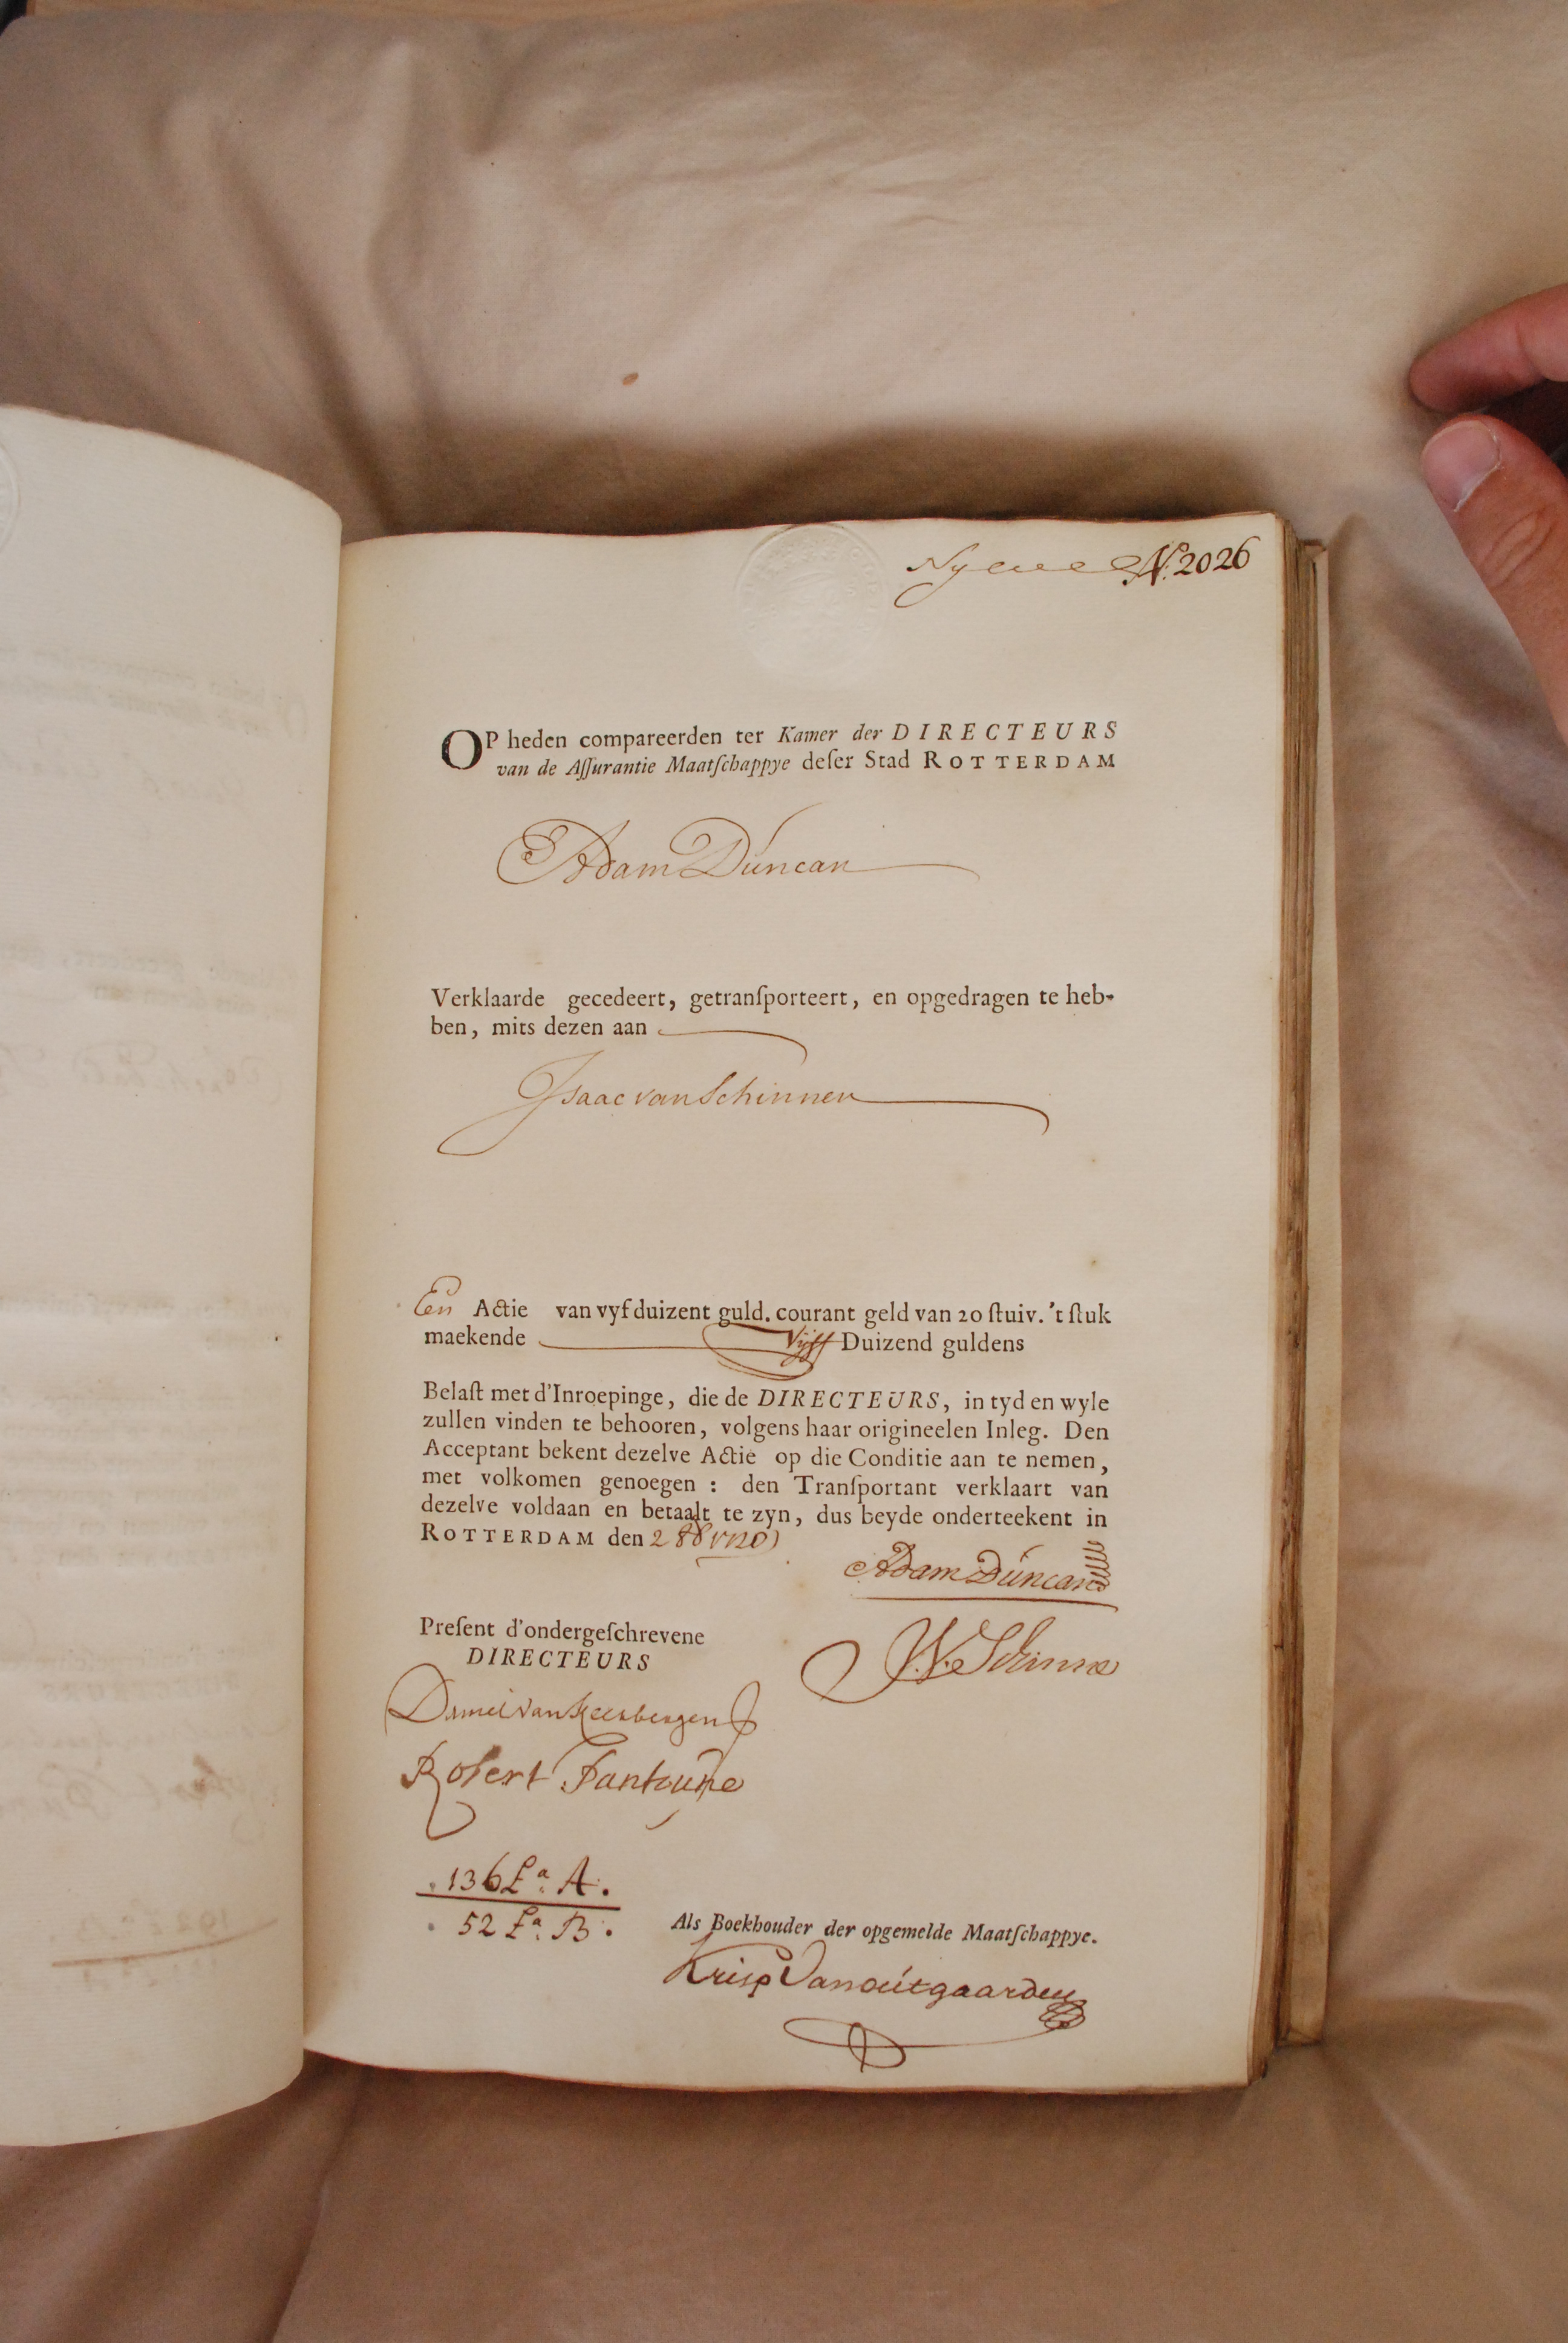 N. 2026
OP heden compareerden ter Kamer der DIRECTEURS
van de Aſſurantie Maatſchappye deſer Stad ROTTERDAM
Adam Duncan
Verklaarde gecedeert, getranſporteert, en opgedragen te heb-
ben, mits dezen aan
Isaac van Schinnen
Een Actie van vyf duizent guld. courant geld van 20 ſtuiv. 't ſtuk
maekende Vijff Duizend guldens
Belaſt met d'Inroepinge, die de DIRECTEURS, in tyd en wyle
zullen vinden te behooren, volgens haar origineelen Inleg. Den
Acceptant bekent dezelve Actie op die Conditie aan te nemen,
met volkomen genoegen : den Tranſportant verklaart van
dezelve voldaan en betaalt te zyn, dus beyde onderteekent in
ROTTERDAM den 2
Adam Duncan
Preſent d'ondergeſchrevene
DIRECTEURS
Robert
136 La A.
52 La B.
Als Boekhouder der opgemelde Maatſchappye.